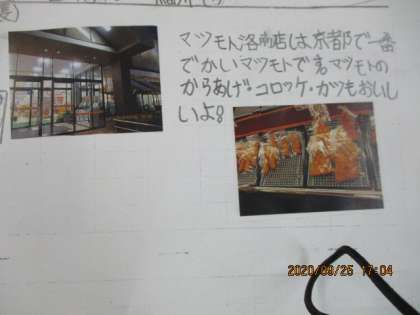 マツモト洛南店は、京都で一番
でかいマツモトです。マツモトの
からあげ・コロッケ・カツもおいし
いよ。
2020/09/25 17:04